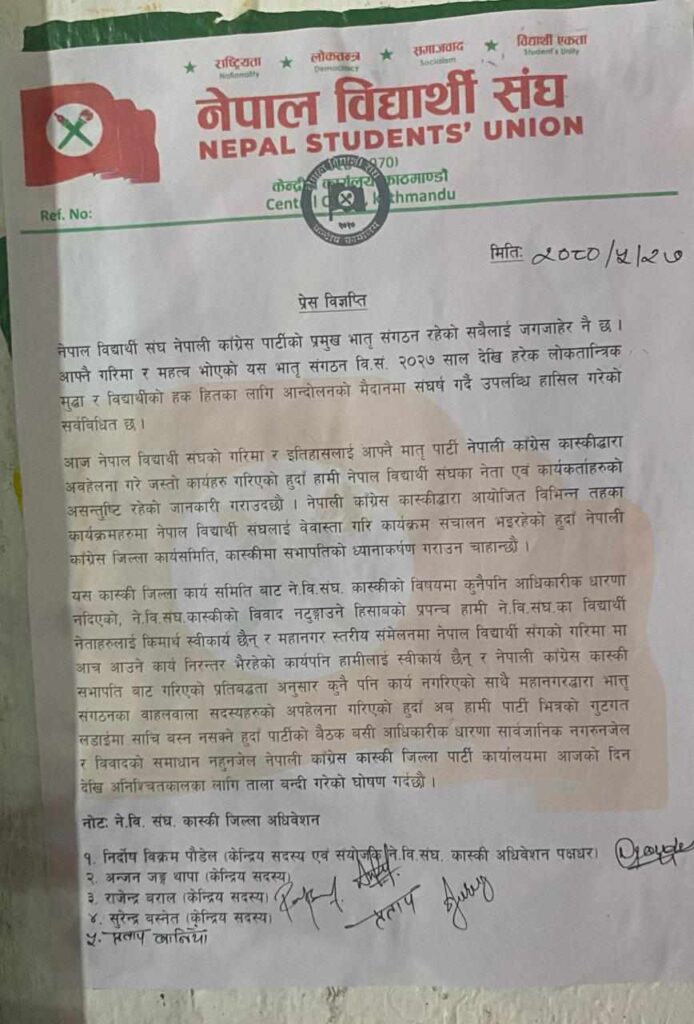 राष्ट्रियता लोकतन्त्र समाजवाद विद्यार्थी एकता
Nationality Democracy Socialism Student's Unity
नेपाल विद्यार्थी संघ
NEPAL STUDENTS' UNION
970)
केन्द्रीय कार्यालय काठमाण्डौ
Central Kathmandu
Ref. No:
मितिः २०८०/५/२७
प्रेस विज्ञप्ति
नेपाल विद्यार्थी संघ नेपाली कांग्रेस पार्टीको प्रमुख भातृ संगठन रहेको सबैलाई जगजाहेर नै छ ।
आफ्नै गरिमा र महत्व भोएको यस भातृ संगठन वि.सं. २०२७ साल देखि हरेक लोकतान्त्रिक
मुद्धा र विद्यार्थीको हक हितका लागि आन्दोलनको मैदानमा संघर्ष गर्दै उपलब्धि हासिल गरेको
सर्वविधित छ ।
आज नेपाल विद्यार्थी संघको गरिमा र इतिहासलाई आफ्नै मातृ पार्टी नेपाली कांग्रेस कास्कीद्धारा
अवहेलना गरे जस्तो कार्यहरु गरिएको हुदाँ हामी नेपाल विद्यार्थी संघका नेता एवं कार्यकर्ताहरुको
असन्तुष्टि रहेको जानकारी गराउदछौ । नेपाली कांग्रेस कास्कीद्धारा आयोजित विभिन्न तहका
कार्यक्रमहरुमा नेपाल विद्यार्थी संघलाई वेवास्ता गरि कार्यक्रम संचालन भइरहेको हुदाँ नेपाली
कांग्रेस जिल्ला कार्यसमिति, कास्कीमा सभापतिको ध्यानाकर्षण गराउन चाहान्छौ ।
यस कास्की जिल्ला कार्य समिति बाट ने.वि.संघ. कास्कीको विषयमा कुनैपनि आधिकारीक धारणा
नदिएको, ने.वि संघ.कास्कीको विवाद नटुङ्गाउने हिसाबको प्रपन्च हामी ने.वि.संघ.का विद्यार्थी
नेताहरुलाई किमार्थ स्वीकार्य छैन् र महानगर स्तरीय संमेलनमा नेपाल विद्यार्थी संगको गरिमा मा
आच आउने कार्य निरन्तर भैरहेको कार्यपनि हामीलाई स्वीकार्य छैन् र नेपाली कांग्रेस कास्की
सभापति बाट गरिएको प्रतिबद्धता अनुसार कुनै पनि कार्य नगरिएको साथै महानगरद्धारा भातृ
संगठनका बाहलवाला सदस्यहरुको अपहेलना गरिएको हुदाँ अब हामी पार्टी भित्रको गुटगत
लडाईमा साचि बस्न नसक्ने हुदाँ पार्टीको बैठक बसी आधिकारीक धारणा सार्वजानिक नगरुनजेल
र विवादको समाधान नहुनजेल नेपाली कांग्रेस कास्की जिल्ला पार्टी कार्यालयमा आजको दिन
देखि अनिश्चितकालका लागि ताला बन्दी गरेको घोषणा गर्दछौ ।
नोटः ने.वि. संघ. कास्की जिल्ला अधिवेशन
१. निर्दोष विक्रम पौडेल (केन्द्रिय सदस्य एवं संयोजक ने.वि.संघ. कास्की अधिवेशन पक्षधर)
२. अन्जन जङ्ग थापा (केन्द्रिय सदस्य)
३. राजेन्द्र बराल (केन्द्रिय सदस्य)
४. सुरेन्द्र बस्नेत (केन्द्रिय सदस्य)
प्रताप
५. प्रताप बानियाँ